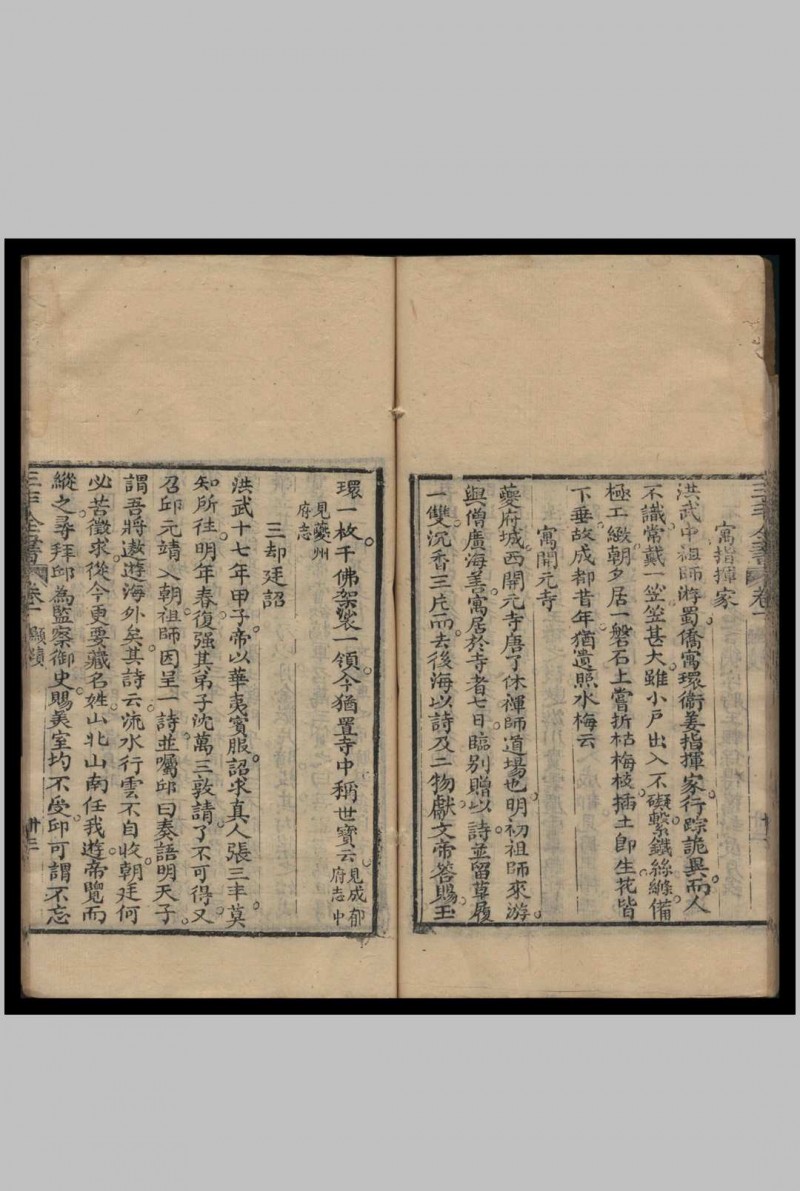 三丰全書 卷一
寓指揮家
洪武中祖師游蜀僑寓環衛姜指揮家行踪詭異而人
不識常戴一笠笠甚大雖小戶出入不礙繫鐵絲絛備
極工緻朝夕居一磐石上嘗折枯梅枝插土卽生花皆
下垂故成都昔年猶遺照水梅云
寓開元寺
夔府城西開元寺唐了休禪師道場也明初祖師來游
與僧廣海善寓居於寺者七日臨别贈以詩並留草履
一雙沉香三片而去後海以詩及二物獻文帝答賜玉
環一枚千佛架裟一領今猶置寺中稱世寶云見成都府志中
見夔州府志
三却廷詔
洪武十七年甲子帝以華夷賓服詔求真人張三丰莫
知所往明年春復强其弟子沈萬三敦請了不可得又
召邱元靖入朝祖師因呈一詩並囑邱曰奏語明天子
謂吾將遨遊海外矣其詩云流水行雲不自收朝廷何
必苦徵求從今更要藏名姓山北山南任我遊帝覽而
縱之尋拜邱為監察御史賜美室均不受邱可謂不忘
三丰全書 卷一 顯蹟 廿三